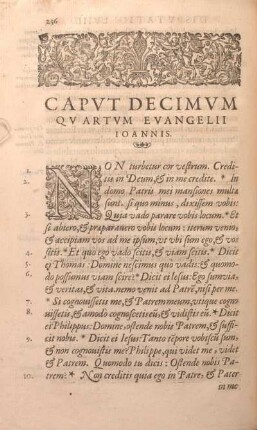 256
CAPVT DECIMVM
QVARTVM EVANGELII
IOANNIS.
1. NON turbetur cor vestrum. Credi-
2. tis in Deum, & in me credite. * In
domo Patris mei mansiones multæ
sunt. si quo minus, dixissem vobis:
3. Quia vado parare vobis locum. * Et
si abiero, & præparauero vobis locum: iterum venio,
& accipiam vos ad me ipsum, vt vbi sum ego, & vos
4. sitis. * Et quo ego vado scitis, & viam scitis. * Dicit
5. ei Thomas: Domine nescimus quo vadis: & quomo-
6. do possumus viam scire? * Dicit ei Iesus: Ego sum via,
& veritas, & vita. nemo venit ad Patrē, nisi per me.
7. * Si cognouissetis me, & Patrem meum, vtique cogno
8. uissetis, & amodo cognoscetis eū, & vidistis eū. * Dicit
ei Philippus: Domine, ostende nobis Patrem, & suffi-
9. cit nobis. * Dicit ei Iesus: Tanto tēpore vobiscū sum,
& non cognouistis me? Philippe, qui videt me, videt
& Patrem. Quomodo tu dicis: Ostende nobis Pa-
10. trem? * Non creditis quia ego in Patre, & Pater
in me